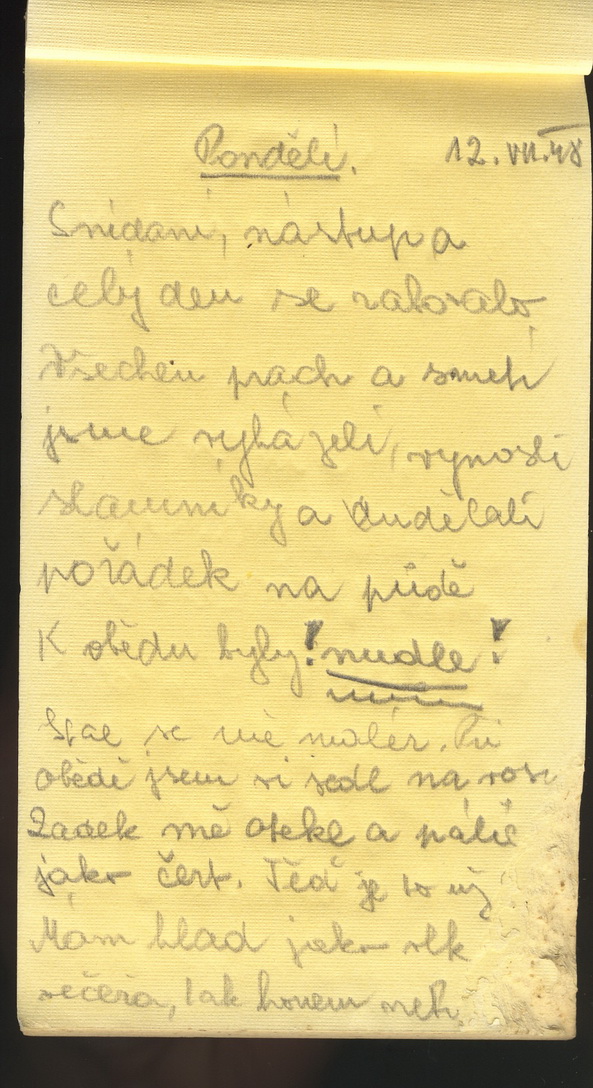 Pondělí. 12. VII. 48
Snídaní, nástup a
celý den se
Všechen prach a smetí
jsme vyházeli, vynosili
slamníky a dudělali
pořádek na půdě
K obědu byly! nudle!
Stal se mě malér. Při
obědě jsem si sedl na vosu
Zadek mě otekl a pálil
jako čert. Téď je to už
Mám hlad jako vlk
večeřa, tak honem